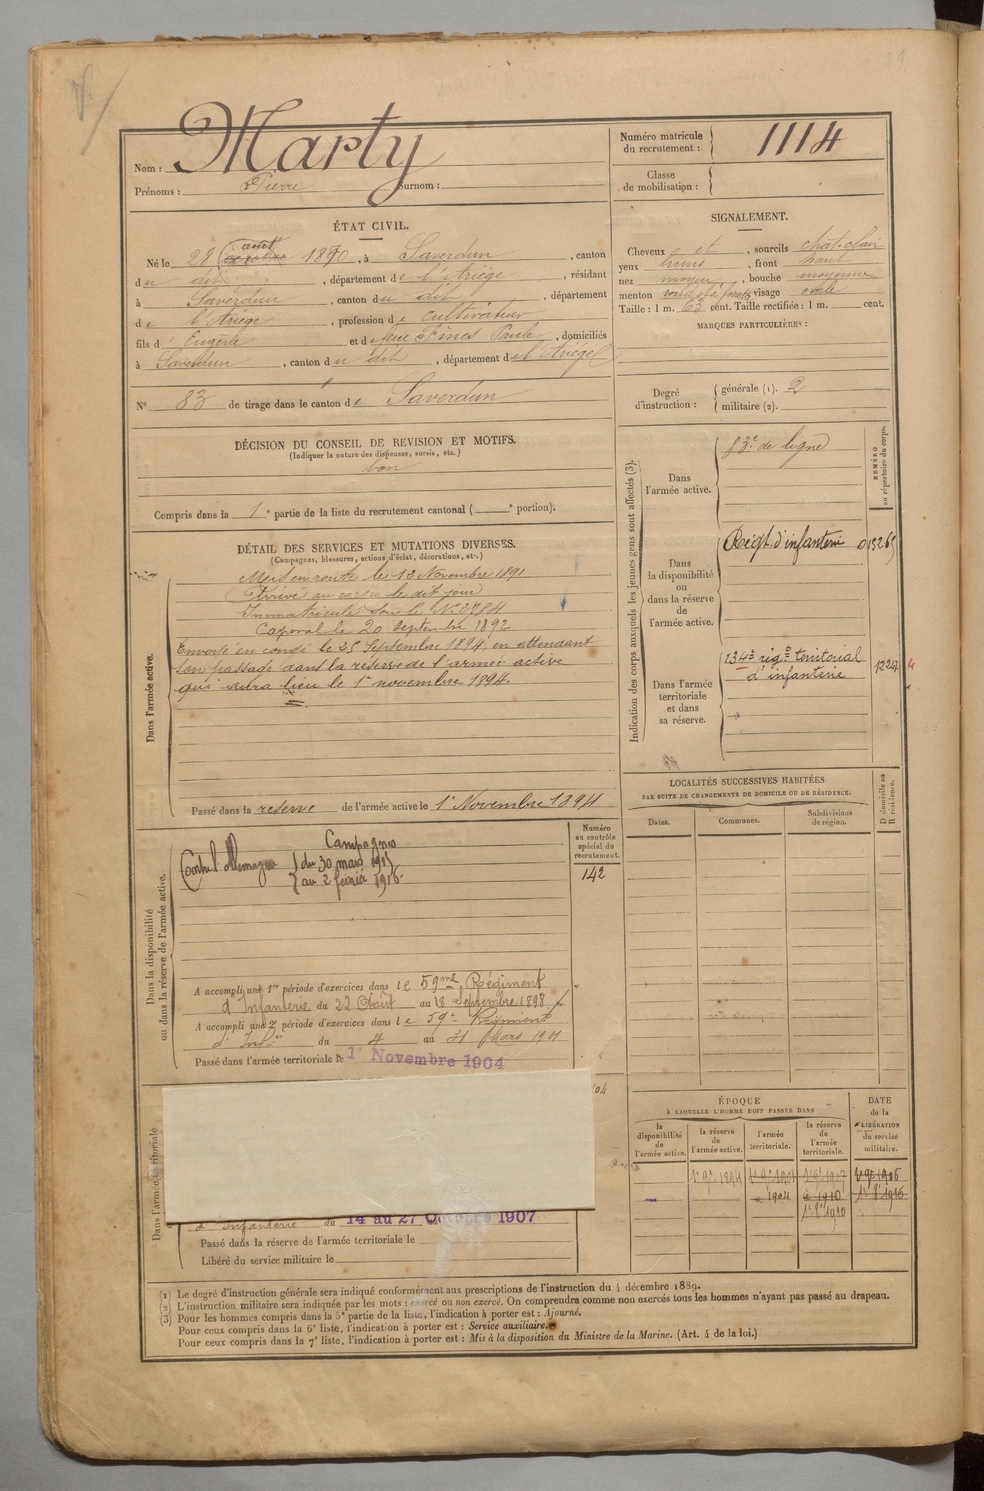 Marty
Nom :
Prénoms : Pierre Surnom :
Numéro matricule du recrutement : 1114
Classe de mobilisation :
ÉTAT CIVIL.
Né le 28 août octobre 1870, à Saverdun, canton
du dit, département de l'Ariège, résidant
à Saverdun, canton du dit, département
de l'Ariège, profession de cultivateur
fils d' Eugène et de feue Fines Paule, domiciliés
à Saverdun, canton du dit, département de l'Ariège
N° 83 de tirage dans le canton de Saverdun
DÉCISION DU CONSEIL DE REVISION ET MOTIFS.
(Indiquer la nature des dispenses, sursis, etc.)
bon
Compris dans la 1e partie de la liste du recrutement cantonal ( e portion).
SIGNALEMENT.
Cheveux et, sourcils chat-clair
yeux bleus, front haut
nez moyen, bouche moyenne
menton rond et à fossette visage ovale
Taille : 1 m. 63 cent. Taille rectifiée : 1 m. cent.
MARQUES PARTICULIÈRES :
Degré d'instruction :
générale (1). 2
militaire (2).
DÉTAIL DES SERVICES ET MUTATIONS DIVERSES.
(Campagnes, blessures, actions d'éclat, décorations, etc.)
Dans l'armée active.
Mis en route le 13 Novembre 1891
Arrivé au corps le dit jour
Immatriculé sous le N° 2784
Caporal le 20 Septembre 1892
Envoyé en congé le 25 Septembre 1894, en attendant
son passage dans la réserve de l'armée active
qui aura lieu le 1er novembre 1894.
Passé dans la réserve de l'armée active le 1er Novembre 1894
Indication des corps auxquels les jeunes gens sont affectés (3).
NUMÉRO au répertoire du corps.
Dans l'armée active.
83e de ligne
Dans la disponibilité ou dans la réserve de l'armée active.
Régt. d'infanterie 01326
Dans l'armée territoriale et dans sa réserve.
134e rég. territorial
d'infanterie
12247
LOCALITÉS SUCCESSIVES HABITÉES
PAR SUITE DE CHANGEMENTS DE DOMICILE OU DE RÉSIDENCE.
Dates.
Communes.
Subdivisions de région.
D domicile ou R résidence.
Dans la disponibilité ou dans la réserve de l'armée active.
Numéro au contrôle spécial du recrutement.
142
Campagnes
Contre l'Allemagne
du 30 mars 1915
au 2 février 1916
A accompli une 1re période d'exercices dans le 59me Régiment
d'Infanterie du 22 Août au 18 Septembre 1898
A accompli une 2e période d'exercices dans le 59e Régiment
d'Infie du 4 au 31 Mars 1901
Passé dans l'armée territoriale le 1er Novembre 1904
Dans l'armée territoriale
04
d'infanterie du 14 au 27 Octobre 1907
Passé dans la réserve de l'armée territoriale le
Libéré du service militaire le
ÉPOQUE
À LAQUELLE L'HOMME DOIT PASSER DANS
DATE de la LIBÉRATION du service militaire.
la disponibilité de l'armée active.
la réserve de l'armée active.
l'armée territoriale.
la réserve de l'armée territoriale.
1er 9bre 1894
1904
1910
(1) Le degré d'instruction générale sera indiqué conformément aux prescriptions de l'instruction du 4 décembre 1889.
(2) L'instruction militaire sera indiquée par les mots : exercé ou non exercé. On comprendra comme non exercés tous les hommes n'ayant pas passé au drapeau.
(3) Pour les hommes compris dans la 5e partie de la liste, l'indication à porter est : Ajourné.
Pour ceux compris dans la 6e liste, l'indication à porter est : Service auxiliaire.
Pour ceux compris dans la 7e liste, l'indication à porter est : Mis à la disposition du Ministre de la Marine. (Art. 4 de la loi.)